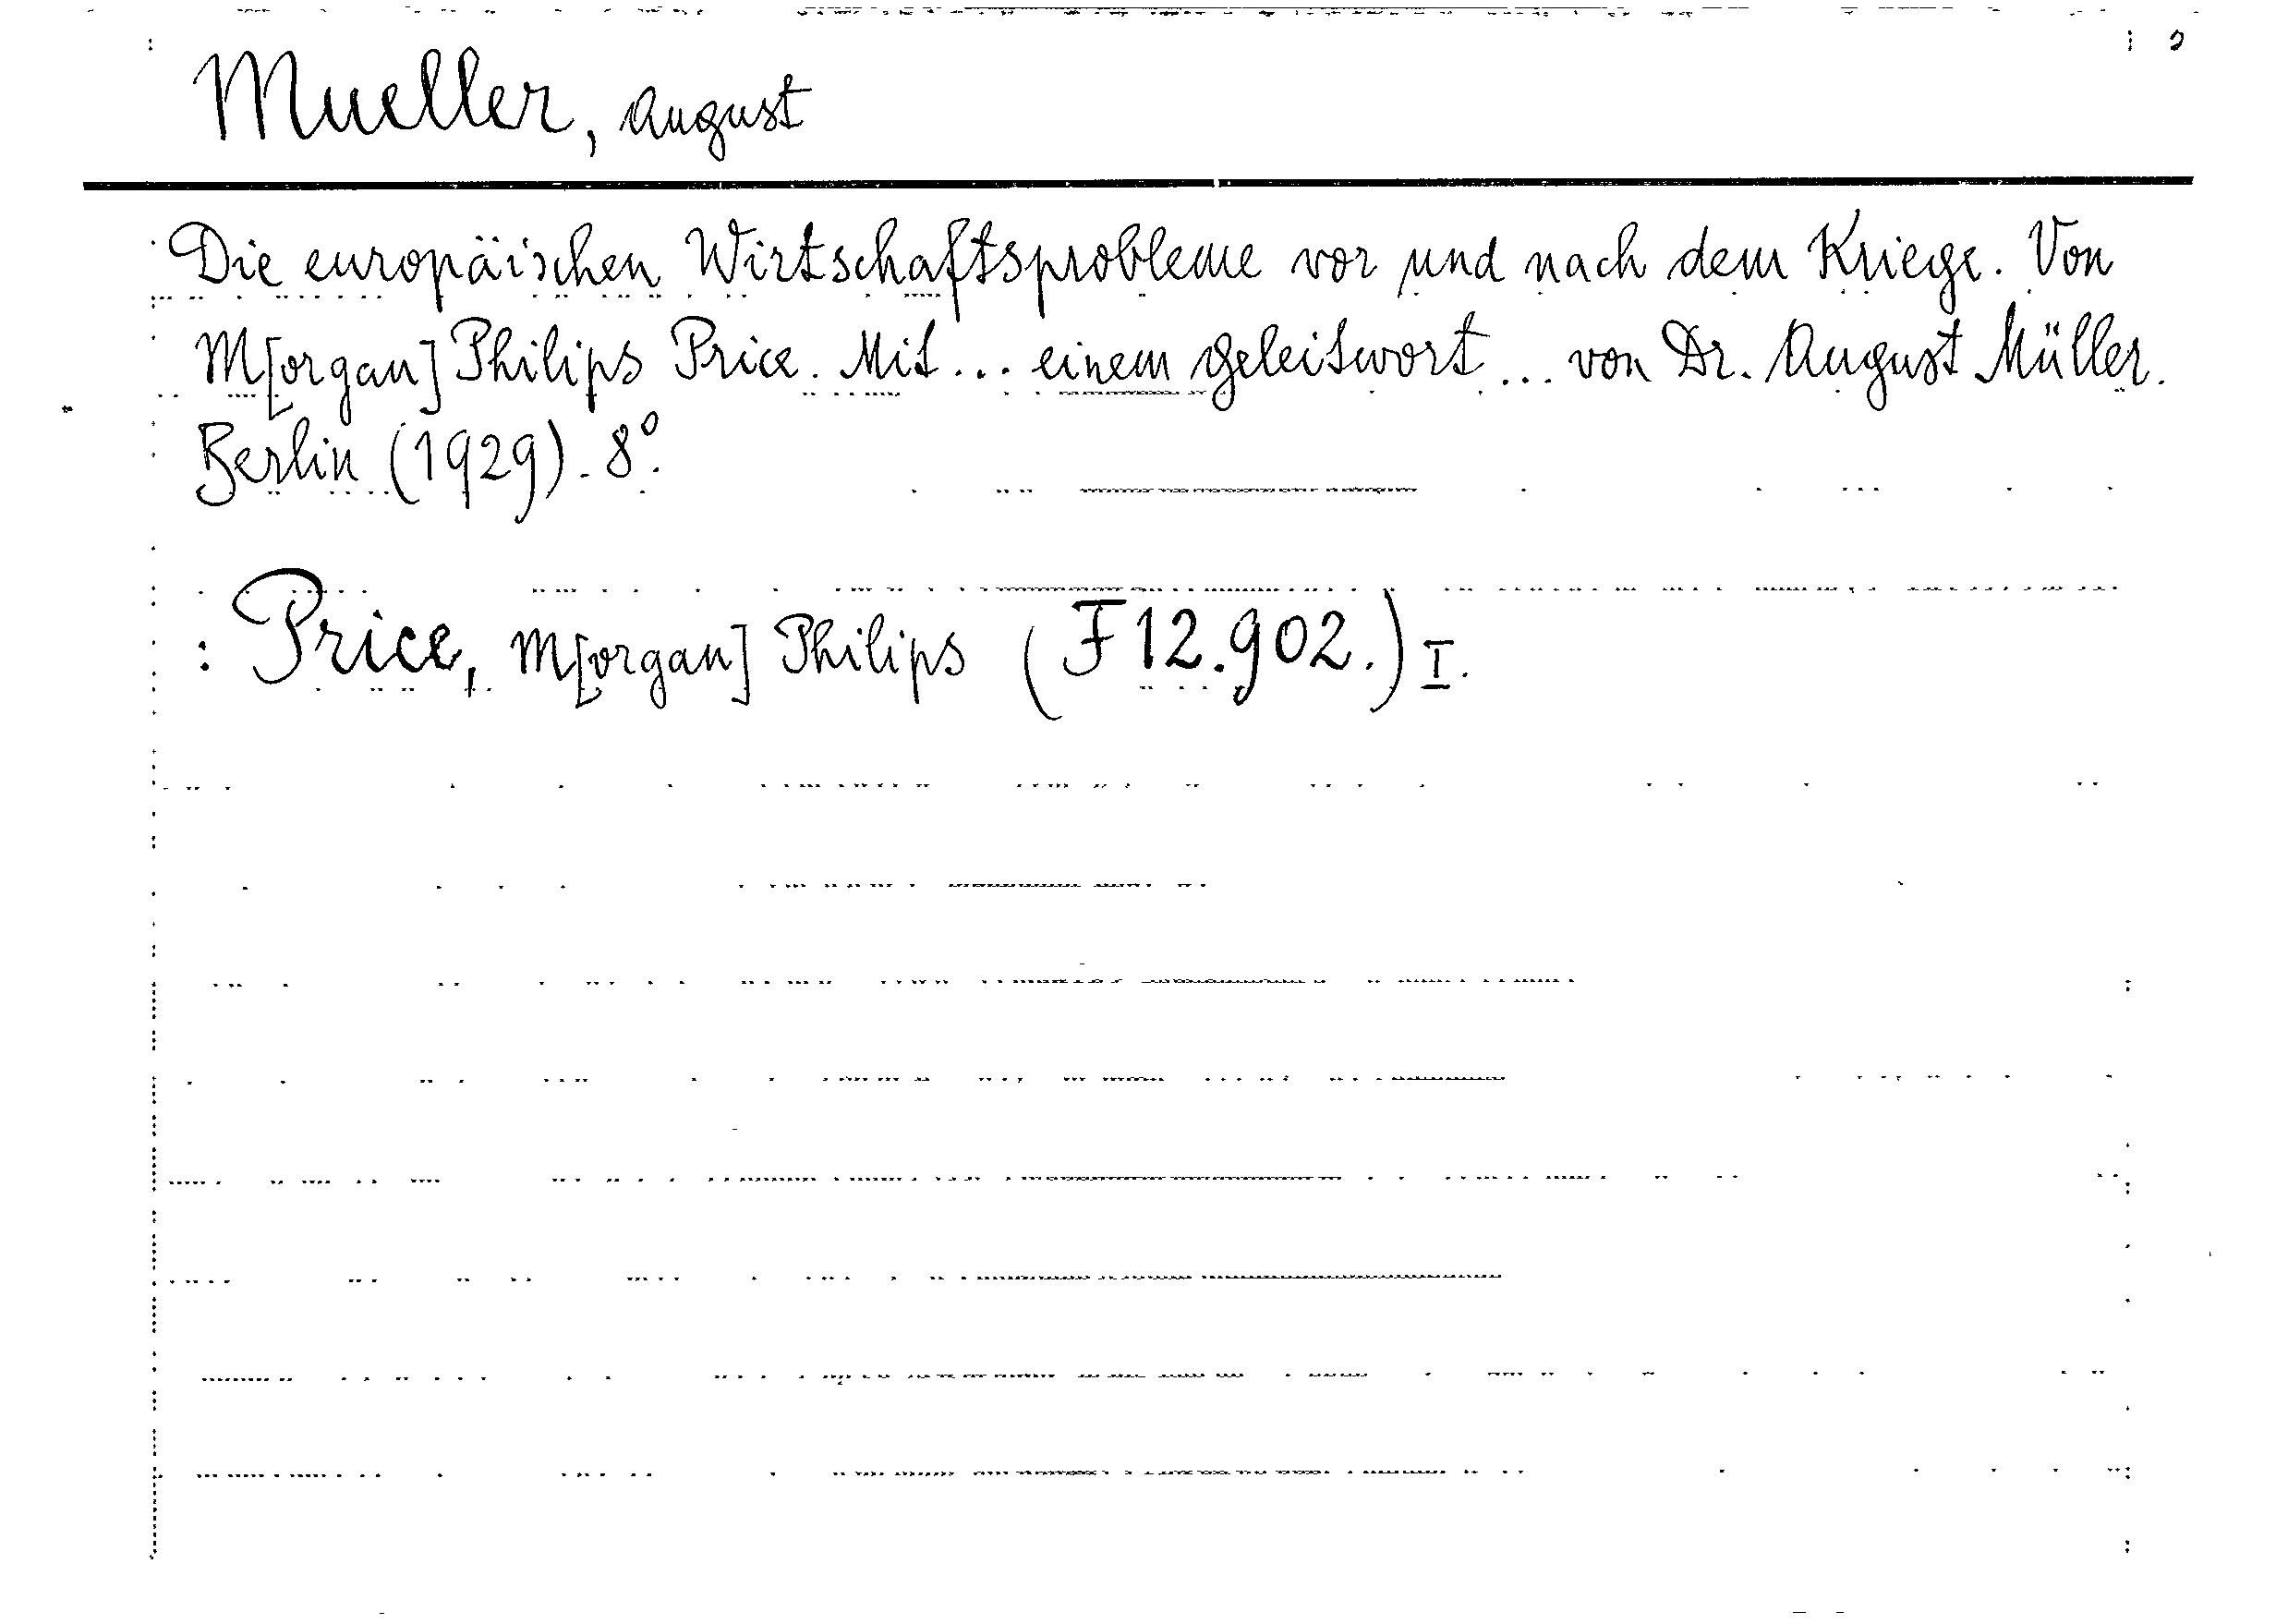 Mueller, August
Die europäischen Wirtschaftsprobleme vor und nach dem Kriege. Von
M[organ] Philips Price. Mit... einem Geleitwort... von Dr. August Müller.
Berlin (1929). 8°.
: Price, M[organ] Philips (F 12.902.) I.